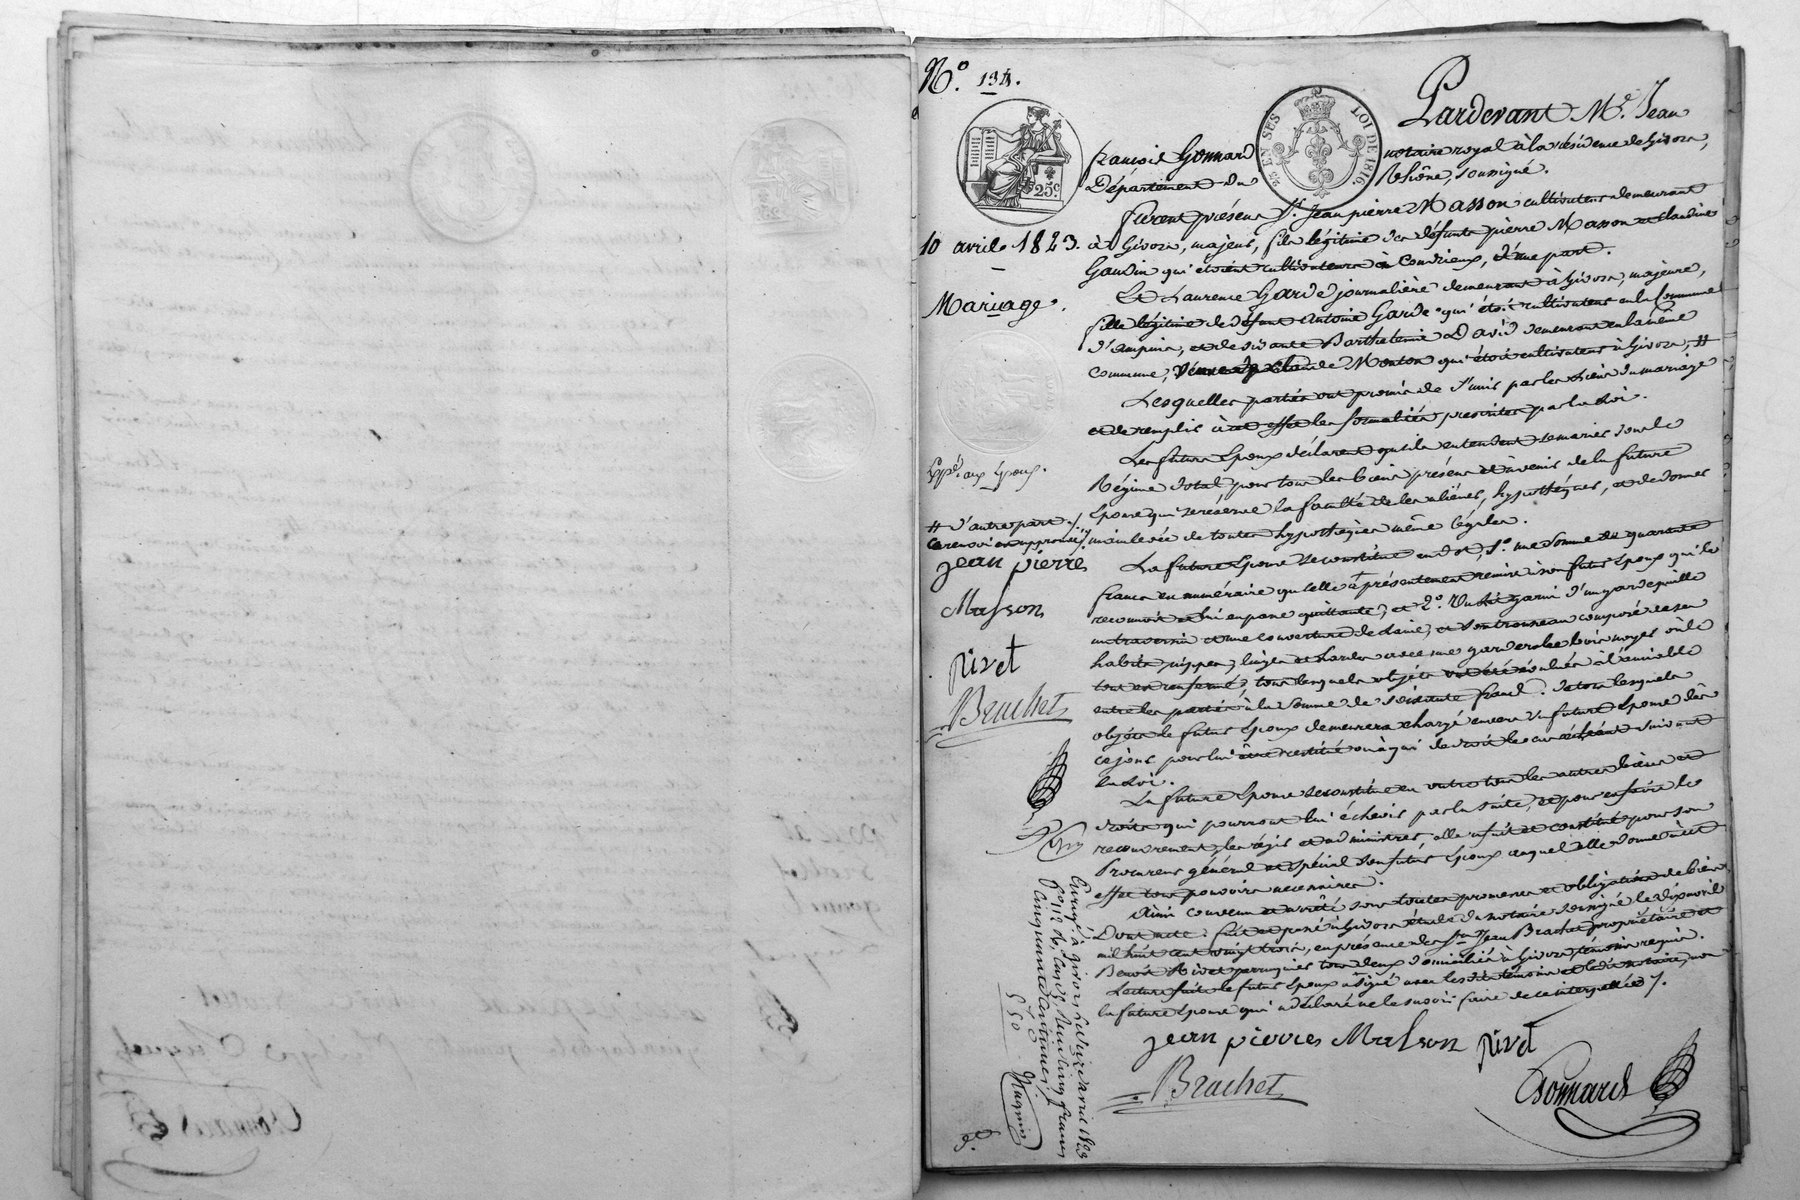 N.º 134.
25 EN SUS
LOI DE 1816.
25.c
Pardevant M.e Jean
françois Gonnard notaire royal à la résidence de Givors,
Département du Rhône, soussigné.
furent présens S.r Jean pierre Masson cultivateur demeurant
10 avril 1823.
à Givors, majeur, fils légitime des défunts pierre Masson et Claudine
Gaudin qui étoient cultivateurs à Condrieux, d'une part.
Mariage.
Et Laurence Garde journalière demeurant à Givors, majeure,
fille légitime de défunt Antoine Garde qui étoit cultivateur en la Commune
d'ampuis, et de vivante Barthelemie David demeurant en la même
commune, veuve de Claude Monton qui étoit cultivateur à Givors, #
Lesquelles parties ont promis de s'unir par les liens du mariage
et de remplir à cet effet les formalités prescrites par la Loi.
Expé. aux Epoux.
Les futurs Epoux déclarent qu'ils entendent se marier sous le
Régime dotal pour tous les biens présens et à venir de la future
Epouse qui se réserve la faculté de les aliéner, hypothéquer, et de donner
main levée de toutes hypothèques même légales.
# d'autre part ./.
Ce renvoi est approuvé ./.
jean pierre
Masson
rivet
Brachet
La future Epouse se constitue en dot, 1.º une somme de quarante
francs en numéraire qu'elle a présentement remise à son futur Epoux qui le
reconnoit et lui en passe quittance; et 2.º Un lit garni d'un garde paille
un traversin et une couverture de laine; et son trousseau composé de ses
habits, nippes, linges et hardes avec une garderobe bois noyer où le
tout est renfermé; tous lesquels objets ont été évalués à l'amiable
entre les parties à la somme de soixante francs. De tous lesquels
objets le futur Epoux demeurera chargé envers la future Epouse dès
ce jour pour lui être restitué ou à qui de droit le cas échéant suivant
la Loi.
La future Epouse se constitue en outre tous les autres biens et
droits qui pourront lui échoir par la suite, et pour en faire le
recouvrement, les régir et administrer, elle a fait et constitué pour son
Procureur général et spécial son futur Epoux auquel elle donne à cet
effet tous pouvoirs nécessaires.
Ainsi convenu et arrêté sous toutes promesses et obligations de biens.
Dont acte: fait et passé à Givors étude du notaire soussigné le dix avril
mil huit cent vingt trois, en présence des S.rs Jean Brachet propriétaire et
Benoît Rivet perruquier tous deux domiciliés à Givors témoins requis.
Lecture faite le futur Epoux a signé avec lesdits témoins et ledit notaire, non
la future Epouse qui a déclaré ne le savoir faire de ce interpellée ./.
jean pierre Masson rivet
Brachet
Gonnard
Enreg. à givors le dix avril 1823
cinquante centimes
5 50